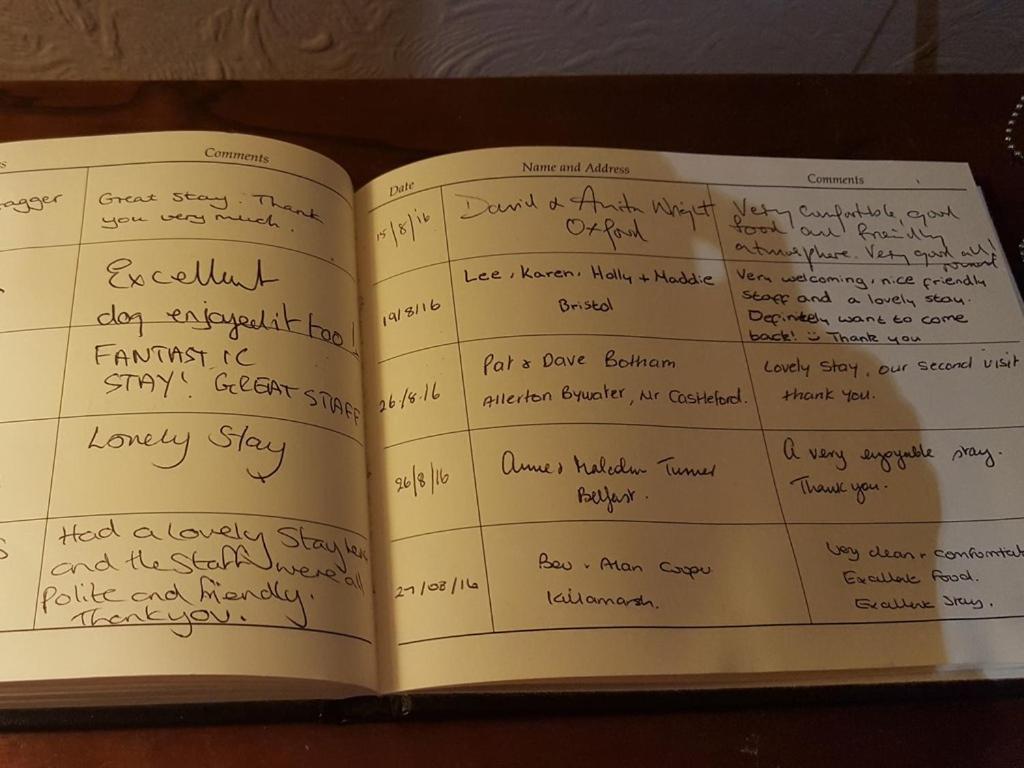 Comments
Great stay. Thank
you very much.
Excellent
dog enjoyed it too!
FANTASTIC
STAY! GREAT STAFF
Lovely Stay
Had a lovely Stay here
and the Staff were all
Polite and friendly.
Thankyou.
Date
Name and Address
Comments
15/8/16
David & Anita Wright
Oxford
Very comfortable, good
food and friendly
atmosphere. Very good all
round!
19/8/16
Lee, Karen, Holly + Maddie
Bristol
Very welcoming, nice friendly
staff and a lovely stay.
Definitely want to come
back! ☺ Thank you
26/8/16
Pat & Dave Botham
Allerton Bywater, Nr Castleford.
Lovely stay, our second visit
thank you.
26/8/16
Anne & Malcolm Turner
Belfast.
A very enjoyable stay.
Thank you.
27/08/16
Bev & Alan Cooper
Killamarsh.
Very clean +
Excellent Food.
Excellent Stay.